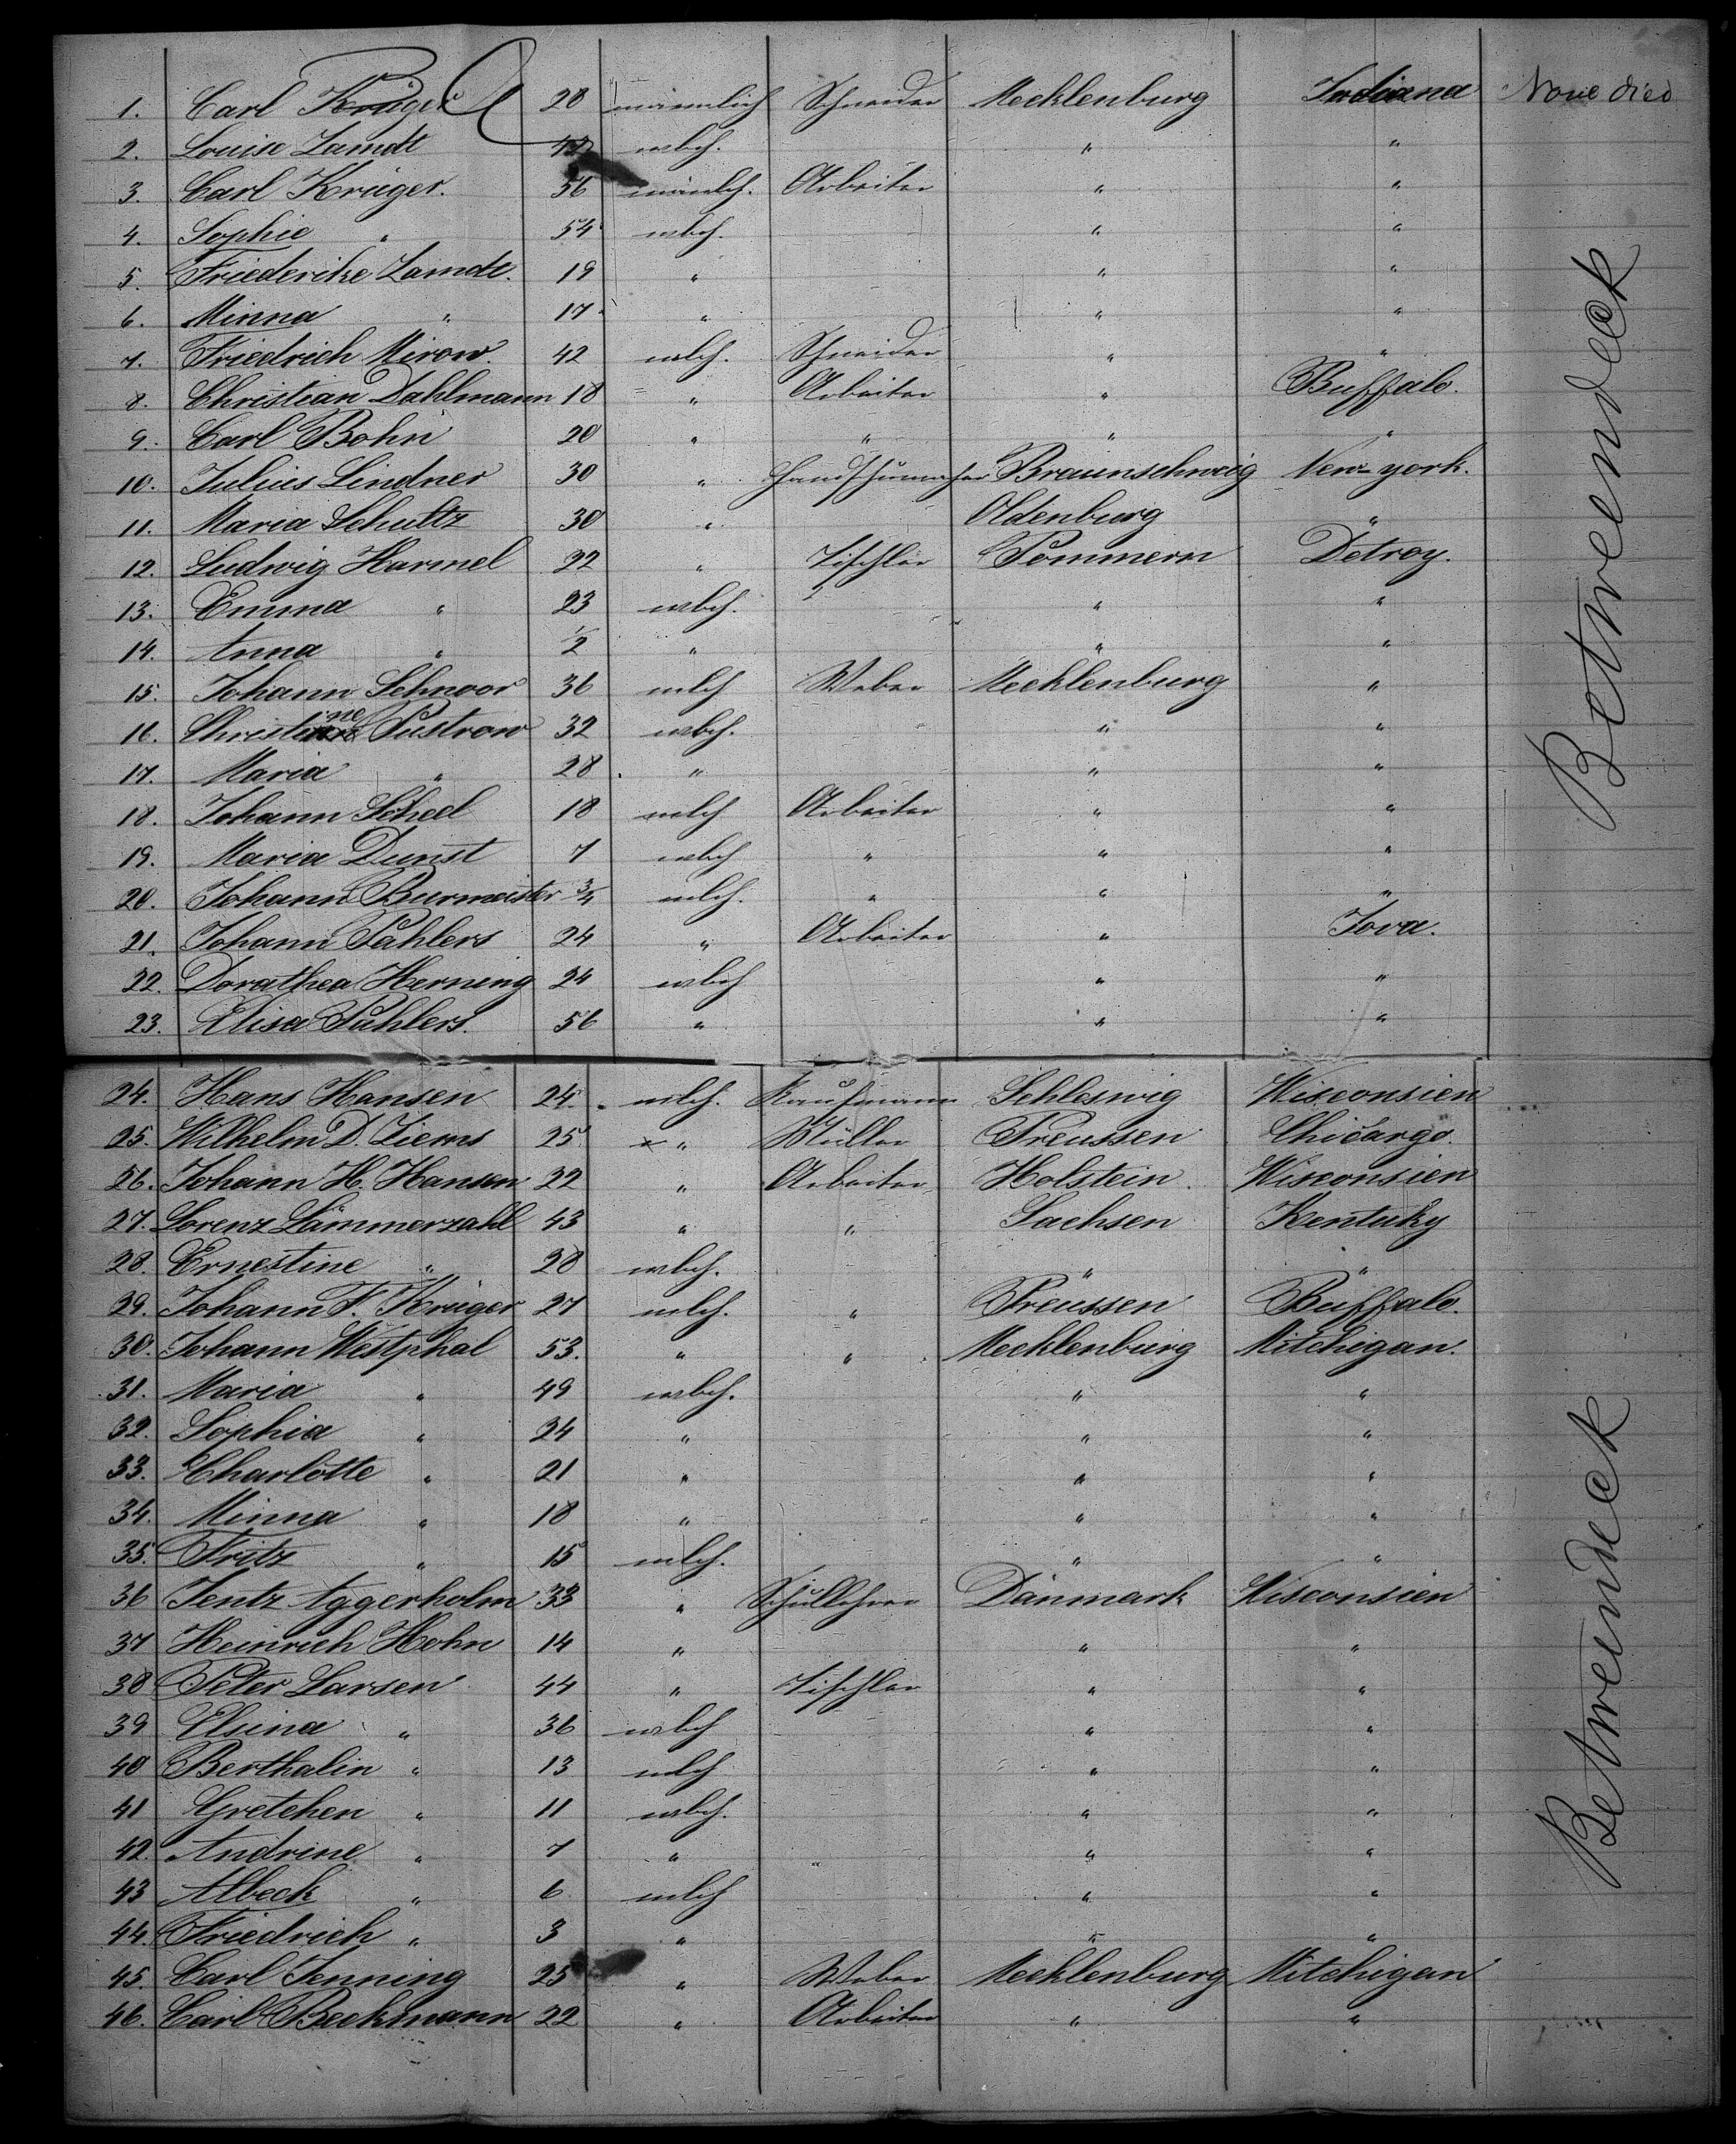 1. Carl Krüger 28 männlich Schneider Mecklenburg Indiana None died
2. Louise Zamdt wbch. " "
3. Carl Krüger. 56 mänlch. Arbeiter " "
4. Sophie " 54 wbch. " "
5. Friederike Zamdt. 19 " " "
6. Minna " 17 " " "
7. Friedrich Mirow. 42 mlch. Schneider " "
8. Christian Dahlmann 18 " Arbeiter " Buffalo.
9. Carl Bohn 20 " " " "
10. Julius Lindner 30 " Handschumacher Braunschweig New-york.
11. Maria Schultz 30 " Oldenburg "
12. Ludwig Harmel 22 " Tischler Pommern Detroy.
13. Emma " 23 wbch. " "
14. Anna " 1/2 " " "
15. Johann Schnoor 36 mlch Weber Mecklenburg "
16. Christine Pustrow 32 wbch. " "
17. Maria " 28 " " "
18. Johann Scheel 18 mlch Arbeiter " "
19. Maria Dunst 7 wbch " " "
20. Johann Burmeister 3/4 mlch. " " "
21. Johann Pahlers 24 " Arbeiter " Jova.
22. Dorathea Herning 24 wbch " "
23. Elisa Pahlers. 56 " " "
Betweendeck
24. Hans Hansen 24. mlch. Kaufmann Schleswig Wisconsien
25. Wilhelm D. Ziems 25 " Müller Preussen Chicargo.
26. Johann H. Hansen 22 " Arbeiter Holstein. Wisconsien
27. Lorenz Lämmerzahl 43 " " Sachsen Kentuky
28. Ernestine " 28 wbch. " "
29. Johann F. Krüger 27 mlch. " Preussen Buffalo.
30. Johann Westphal 53. " " Mecklenburg Mitchigan.
31. Maria " 49 wbch. " "
32. Sophia " 24 " " "
33. Charlotte " 21 " " "
34. Minna " 18 " " "
35. Fritz " 15 mlch. " "
36 Jentz Aggerholm 33 " Schullehrer Dänmark Wisconsien
37 Heinrich Hohn 14 " " "
38 Peter Larsen 44 " Tischler " "
39 Elsina " 36 wbch " "
40 Berthalin " 13 mlch " "
41 Gretchen " 11 wbch. " "
42. Andrine " 7 " " "
43 Albeck " 6 mlch " "
44. Friedrich " 3 " " "
45. Carl Jenning 25 " Weber Mecklenburg Mitchigan
46. Carl Beckmann 22 " Arbeiter " "
Betweendeck